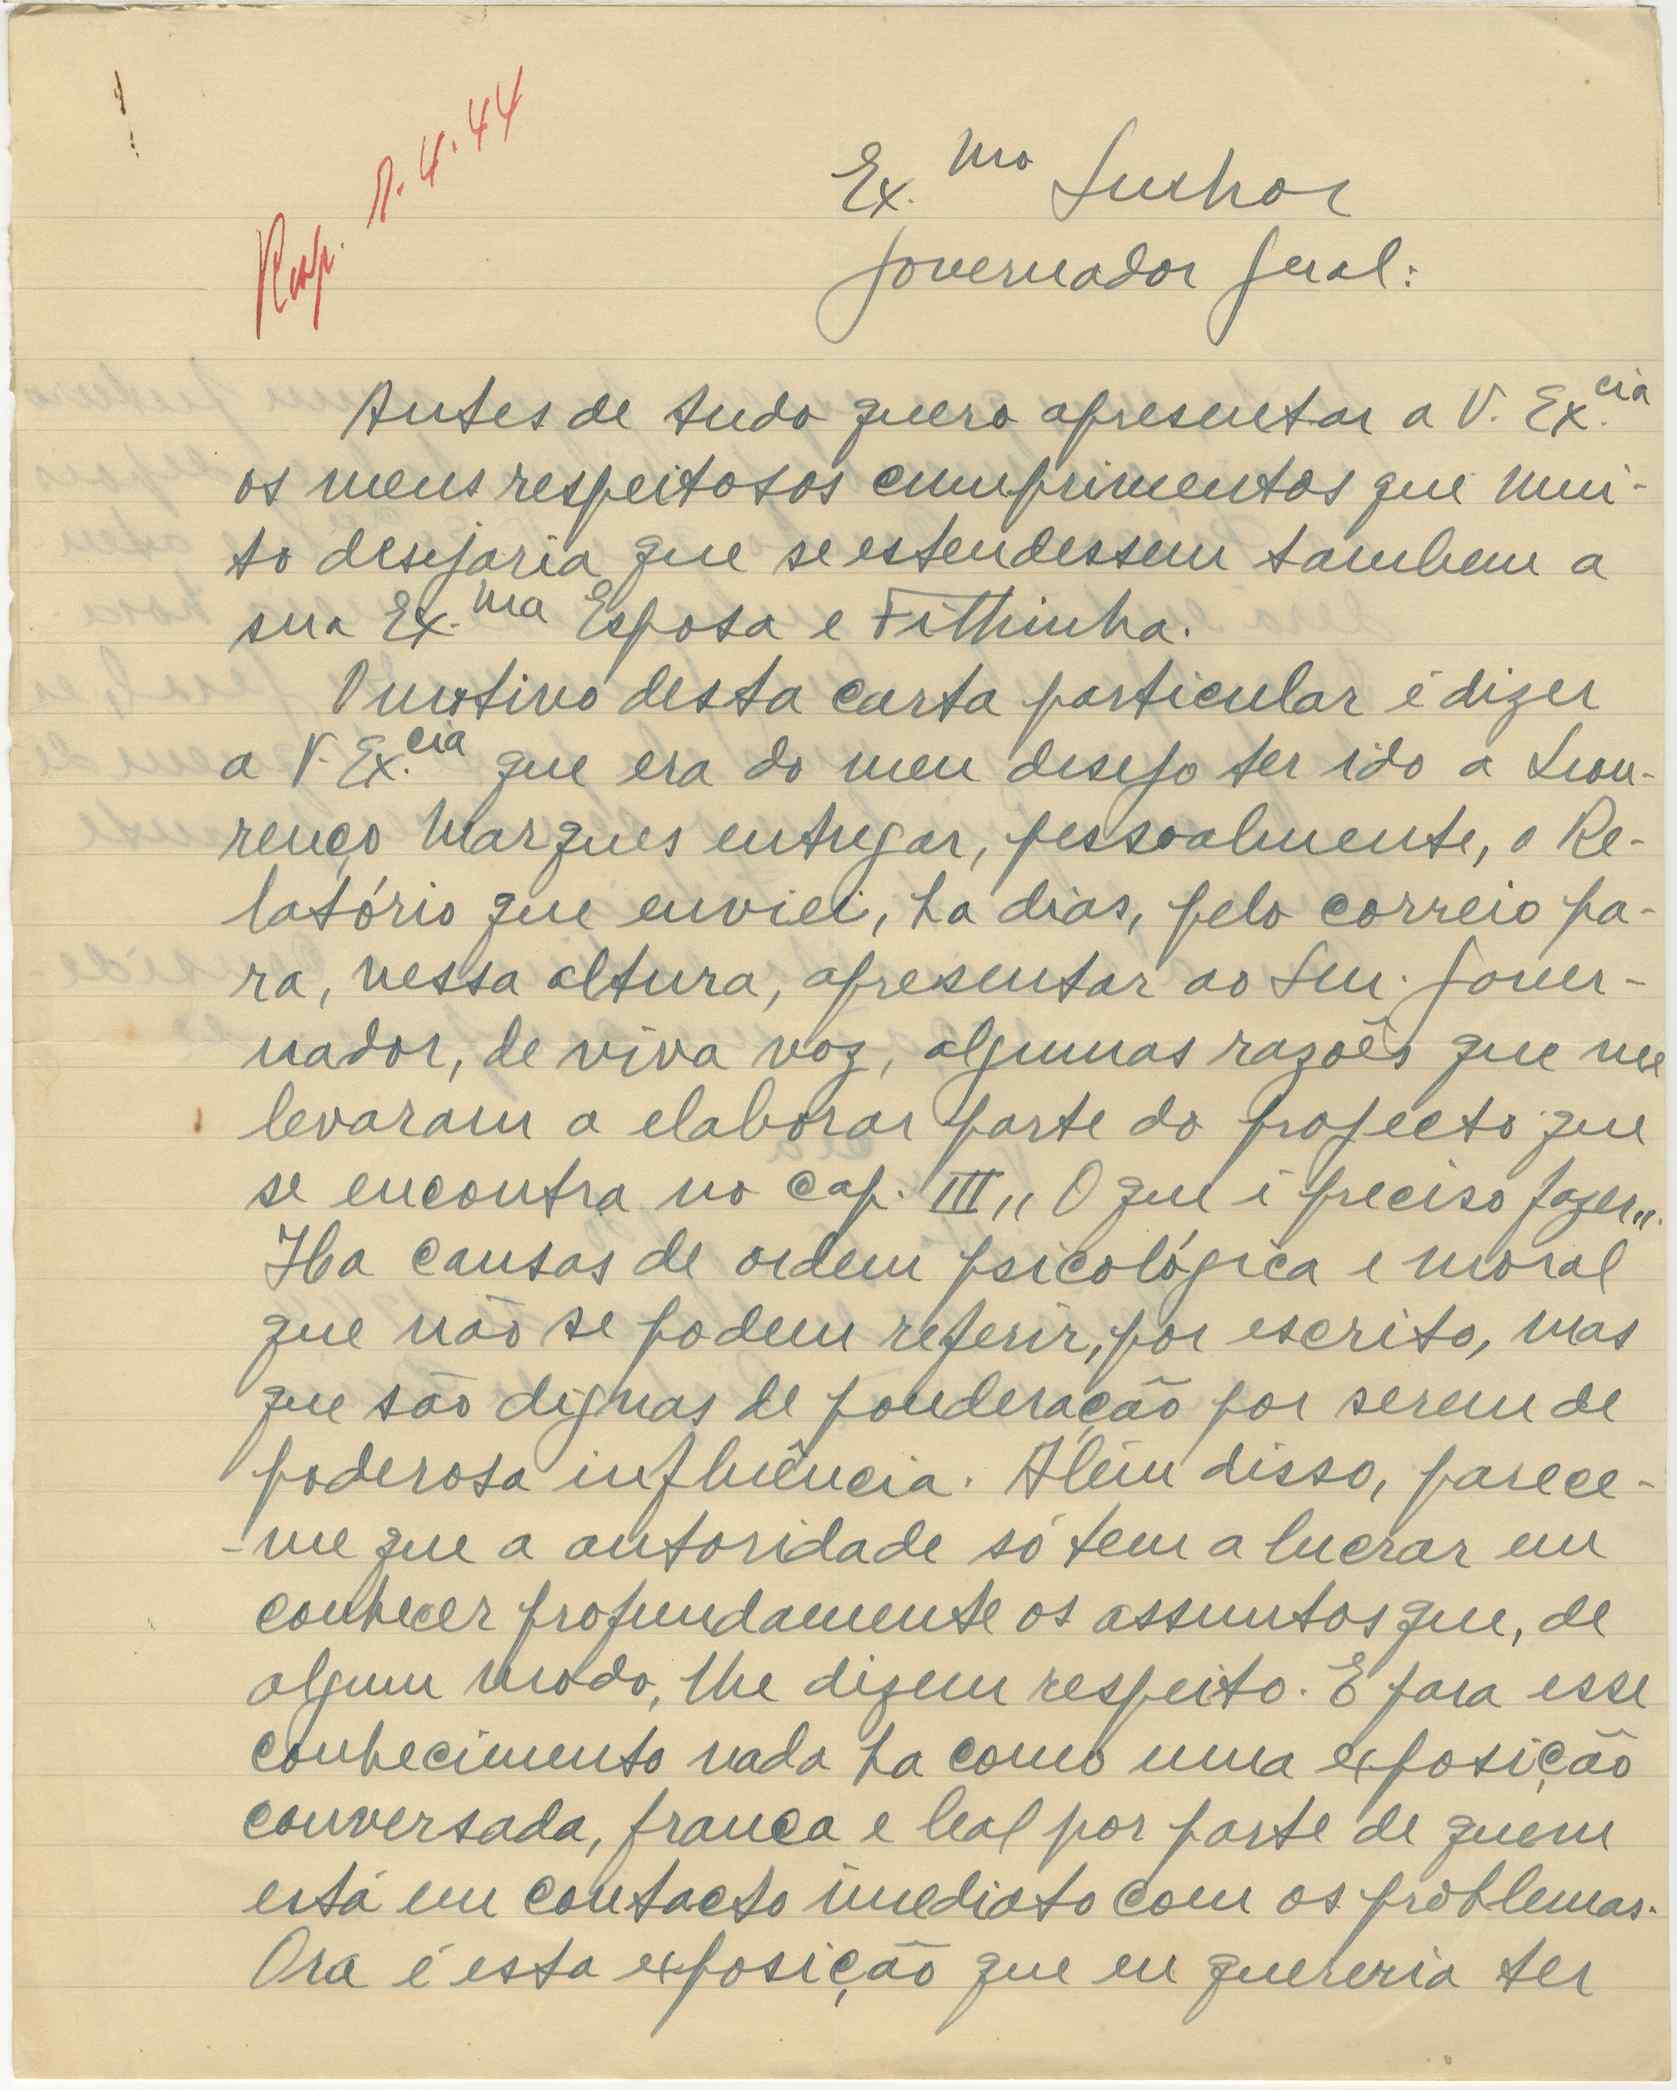 Resp. 1.4.44
Ex.mo Senhor
Governador Geral:
Antes de tudo quero apresentar a V. Ex.cia
os meus respeitosos cumprimentos que mui-
to desejaria que se estendessem tambem a
sua Ex.ma Esposa e Filhinha.
O motivo desta carta particular é dizer
a V. Ex.cia que era do meu desejo ter ido a Lou-
renço Marques entregar, pessoalmente, o Re-
latório que enviei, ha dias, pelo correio pa-
ra, nessa altura, apresentar ao Sen. Gover-
nador, de viva voz, algumas razões que me
levaram a elaborar parte do projecto que
se encontra no cap. III „ O que é preciso fazer„.
Ha causas de ordem psicológica e moral
que não se podem referir, por escrito, mas
que são dignas de ponderação por serem de
poderosa influência. Além disso, parece-
-me que a autoridade só tem a lucrar em
conhecer profundamente os assuntos que, de
algum modo, lhe dizem respeito. E para esse
conhecimento nada ha como uma exposição
conversada, franca e leal por parte de quem
está em contacto imediato com os problemas.
Ora é esta exposição que eu quereria ter